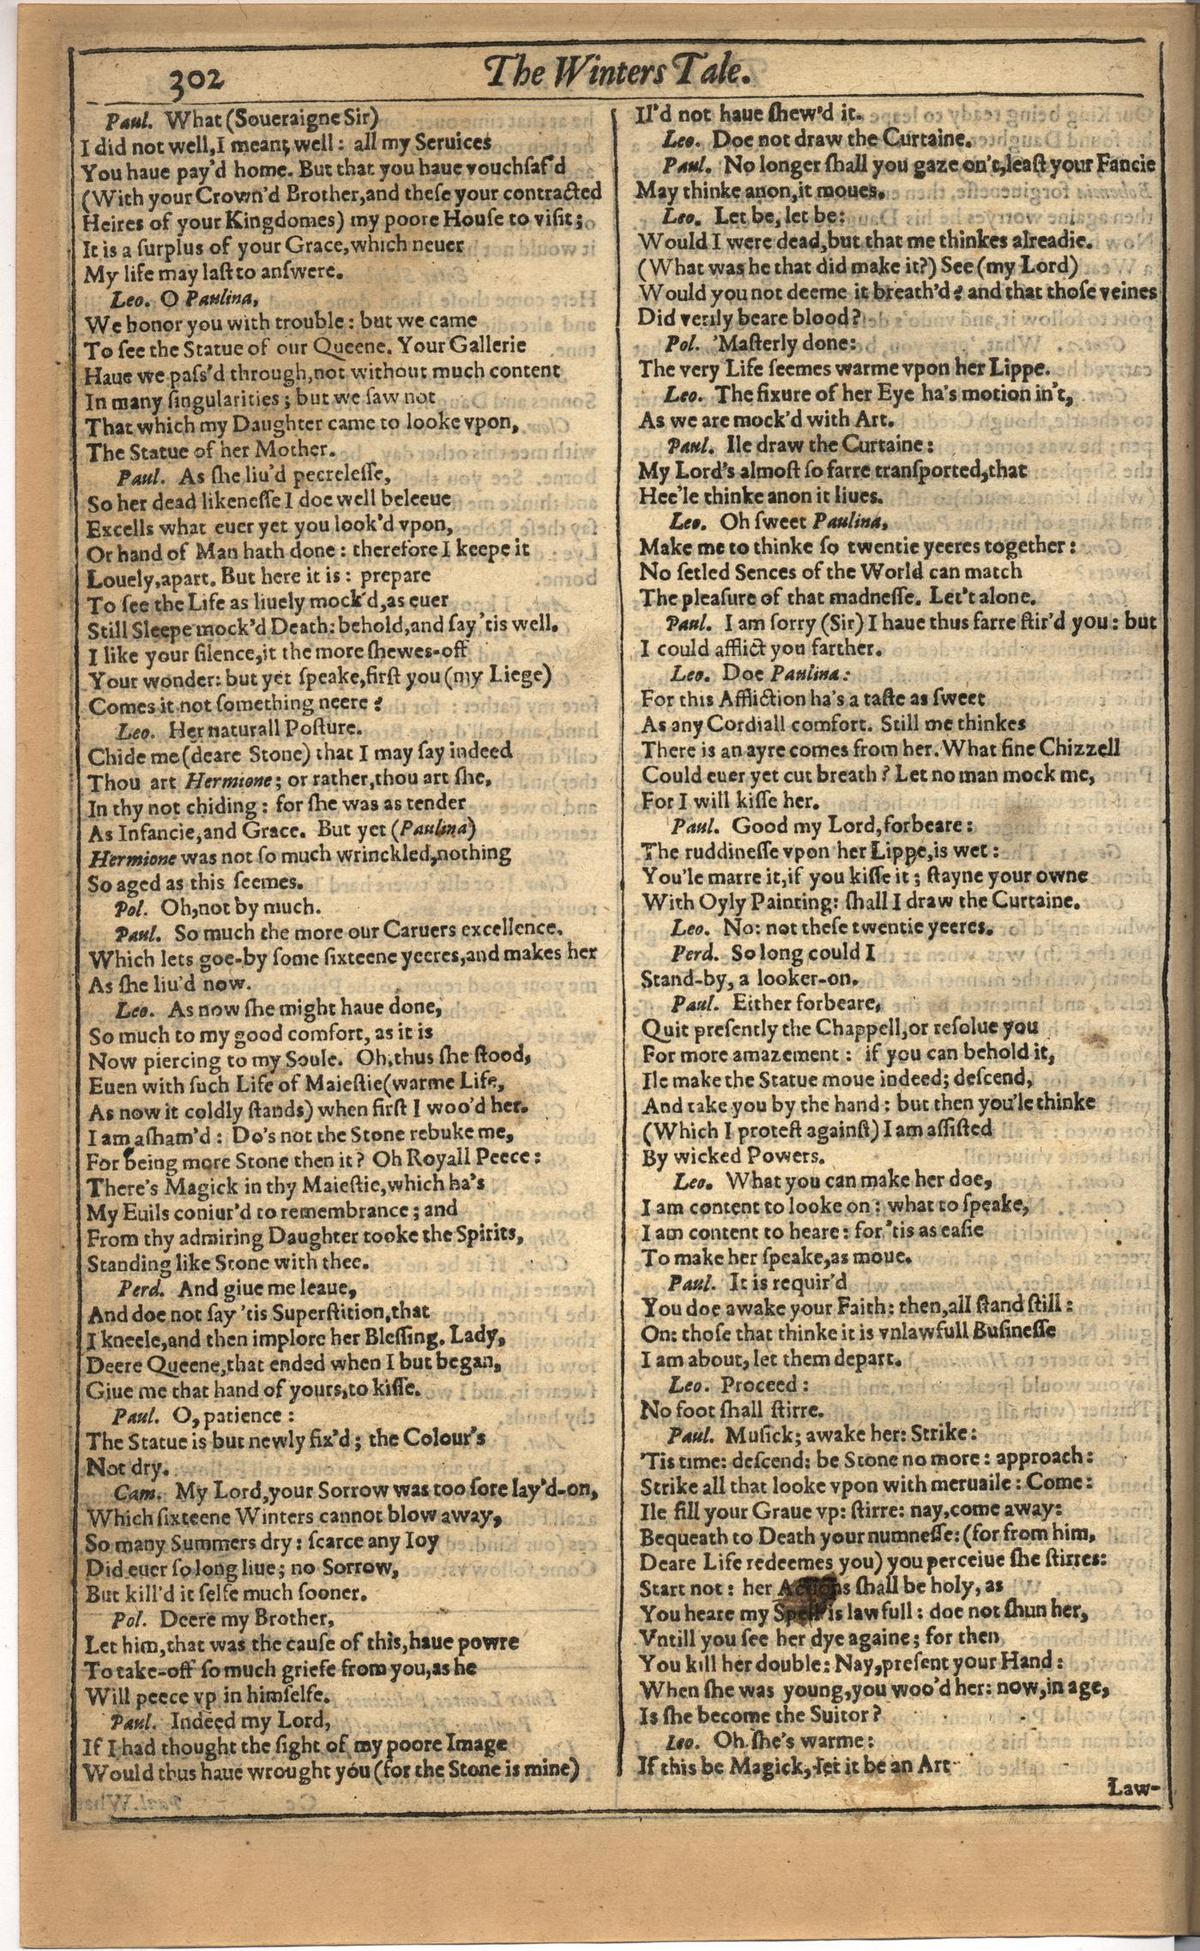 302
The Winters Tale.
Paul. What (Soueraigne Sir)
I did not well, I meant well: all my Seruices
You haue pay'd home. But that you haue vouchsaf'd
(With your Crown'd Brother, and these your contracted
Heires of your Kingdomes) my poore House to visit;
It is a surplus of your Grace, which neuer
My life may last to answere.
Leo. O Paulina,
We honor you with trouble: but we came
To see the Statue of our Queene. Your Gallerie
Haue we pass'd through, not without much content
In many singularities; but we saw not
That which my Daughter came to looke vpon,
The Statue of her Mother.
Paul. As she liu'd peerelesse,
So her dead likenesse I doe well beleeue
Excells what euer yet you look'd vpon,
Or hand of Man hath done: therefore I keepe it
Louely, apart. But here it is: prepare
To see the Life as liuely mock'd, as euer
Still Sleepe mock'd Death: behold, and say 'tis well.
I like your silence, it the more shewes-off
Your wonder: but yet speake, first you (my Liege)
Comes it not something neere?
Leo. Her naturall Posture.
Chide me (deare Stone) that I may say indeed
Thou art Hermione; or rather, thou art she,
In thy not chiding: for she was as tender
As Infancie, and Grace. But yet (Paulina)
Hermione was not so much wrinckled, nothing
So aged as this seemes.
Pol. Oh, not by much.
Paul. So much the more our Caruers excellence,
Which lets goe-by some sixteene yeeres, and makes her
As she liu'd now.
Leo. As now she might haue done,
So much to my good comfort, as it is
Now piercing to my Soule. Oh, thus she stood,
Euen with such Life of Maiestie (warme Life,
As now it coldly stands) when first I woo'd her.
I am asham'd: Do's not the Stone rebuke me,
For being more Stone then it? Oh Royall Peece:
There's Magick in thy Maiestie, which ha's
My Euils coniur'd to remembrance; and
From thy admiring Daughter tooke the Spirits,
Standing like Stone with thee.
Perd. And giue me leaue,
And doe not say 'tis Superstition, that
I kneele, and then implore her Blessing. Lady,
Deere Queene, that ended when I but began,
Giue me that hand of yours, to kisse.
Paul. O, patience:
The Statue is but newly fix'd; the Colour's
Not dry.
Cam. My Lord, your Sorrow was too sore lay'd-on,
Which sixteene Winters cannot blow away,
So many Summers dry: scarce any Ioy
Did euer so long liue; no Sorrow,
But kill'd it selfe much sooner.
Pol. Deere my Brother,
Let him, that was the cause of this, haue powre
To take-off so much griefe from you, as he
Will peece vp in himselfe.
Paul. Indeed my Lord,
If I had thought the sight of my poore Image
Would thus haue wrought you (for the Stone is mine)
Il'd not haue shew'd it.
Leo. Doe not draw the Curtaine.
Paul. No longer shall you gaze on't, least your Fancie
May thinke anon, it moues.
Leo. Let be, let be:
Would I were dead, but that me thinkes alreadie.
(What was he that did make it?) See (my Lord)
Would you not deeme it breath'd? and that those veines
Did verily beare blood?
Pol. 'Masterly done:
The very Life seemes warme vpon her Lippe.
Leo. The fixure of her Eye ha's motion in't,
As we are mock'd with Art.
Paul. Ile draw the Curtaine:
My Lord's almost so farre transported, that
Hee'le thinke anon it liues.
Leo. Oh sweet Paulina,
Make me to thinke so twentie yeeres together:
No setled Sences of the World can match
The pleasure of that madnesse. Let't alone.
Paul. I am sorry (Sir) I haue thus farre stir'd you: but
I could afflict you farther.
Leo. Doe Paulina:
For this Affliction ha's a taste as sweet
As any Cordiall comfort. Still me thinkes
There is an ayre comes from her. What fine Chizzell
Could euer yet cut breath? Let no man mock me,
For I will kisse her.
Paul. Good my Lord, forbeare:
The ruddinesse vpon her Lippe, is wet:
You'le marre it, if you kisse it; stayne your owne
With Oyly Painting: shall I draw the Curtaine.
Leo. No: not these twentie yeeres.
Perd. So long could I
Stand-by, a looker-on.
Paul. Either forbeare,
Quit presently the Chappell, or resolue you
For more amazement: if you can behold it,
Ile make the Statue moue indeed; descend,
And take you by the hand: but then you'le thinke
(Which I protest against) I am assisted
By wicked Powers.
Leo. What you can make her doe,
I am content to looke on: what to speake,
I am content to heare: for 'tis as easie
To make her speake, as moue.
Paul. It is requir'd
You doe awake your Faith: then, all stand still:
On: those that thinke it is vnlawfull Businesse
I am about, let them depart.
Leo. Proceed:
No foot shall stirre.
Paul. Musick; awake her: Strike:
'Tis time: descend: be Stone no more: approach:
Strike all that looke vpon with meruaile: Come:
Ile fill your Graue vp: stirre: nay, come away:
Bequeath to Death your numnesse: (for from him,
Deare Life redeemes you) you perceiue she stirres:
Start not: her Actions shall be holy, as
You heare my Spell is lawfull: doe not shun her,
Vntill you see her dye againe; for then
You kill her double: Nay, present your Hand:
When she was young, you woo'd her: now, in age,
Is she become the Suitor?
Leo. Oh she's warme:
If this be Magick, let it be an Art
Law-